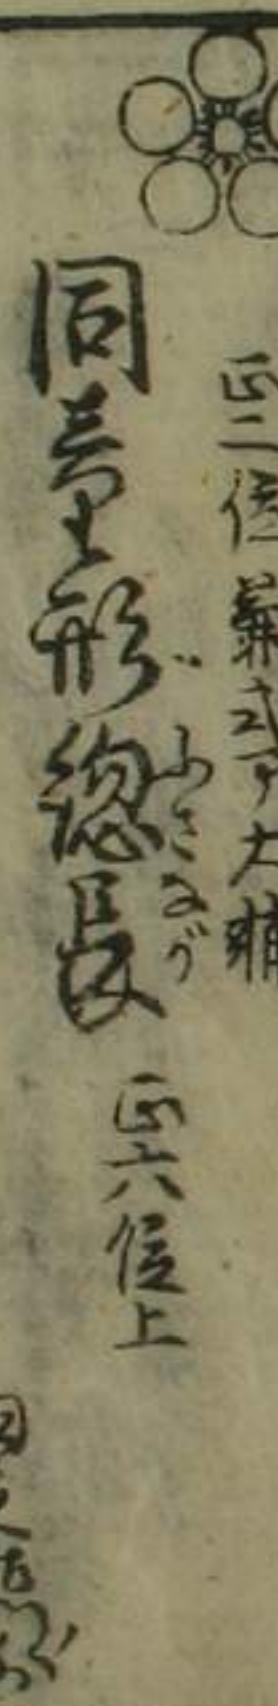 正二位兼式部大輔
同童形總長
ふさなが
正六位上